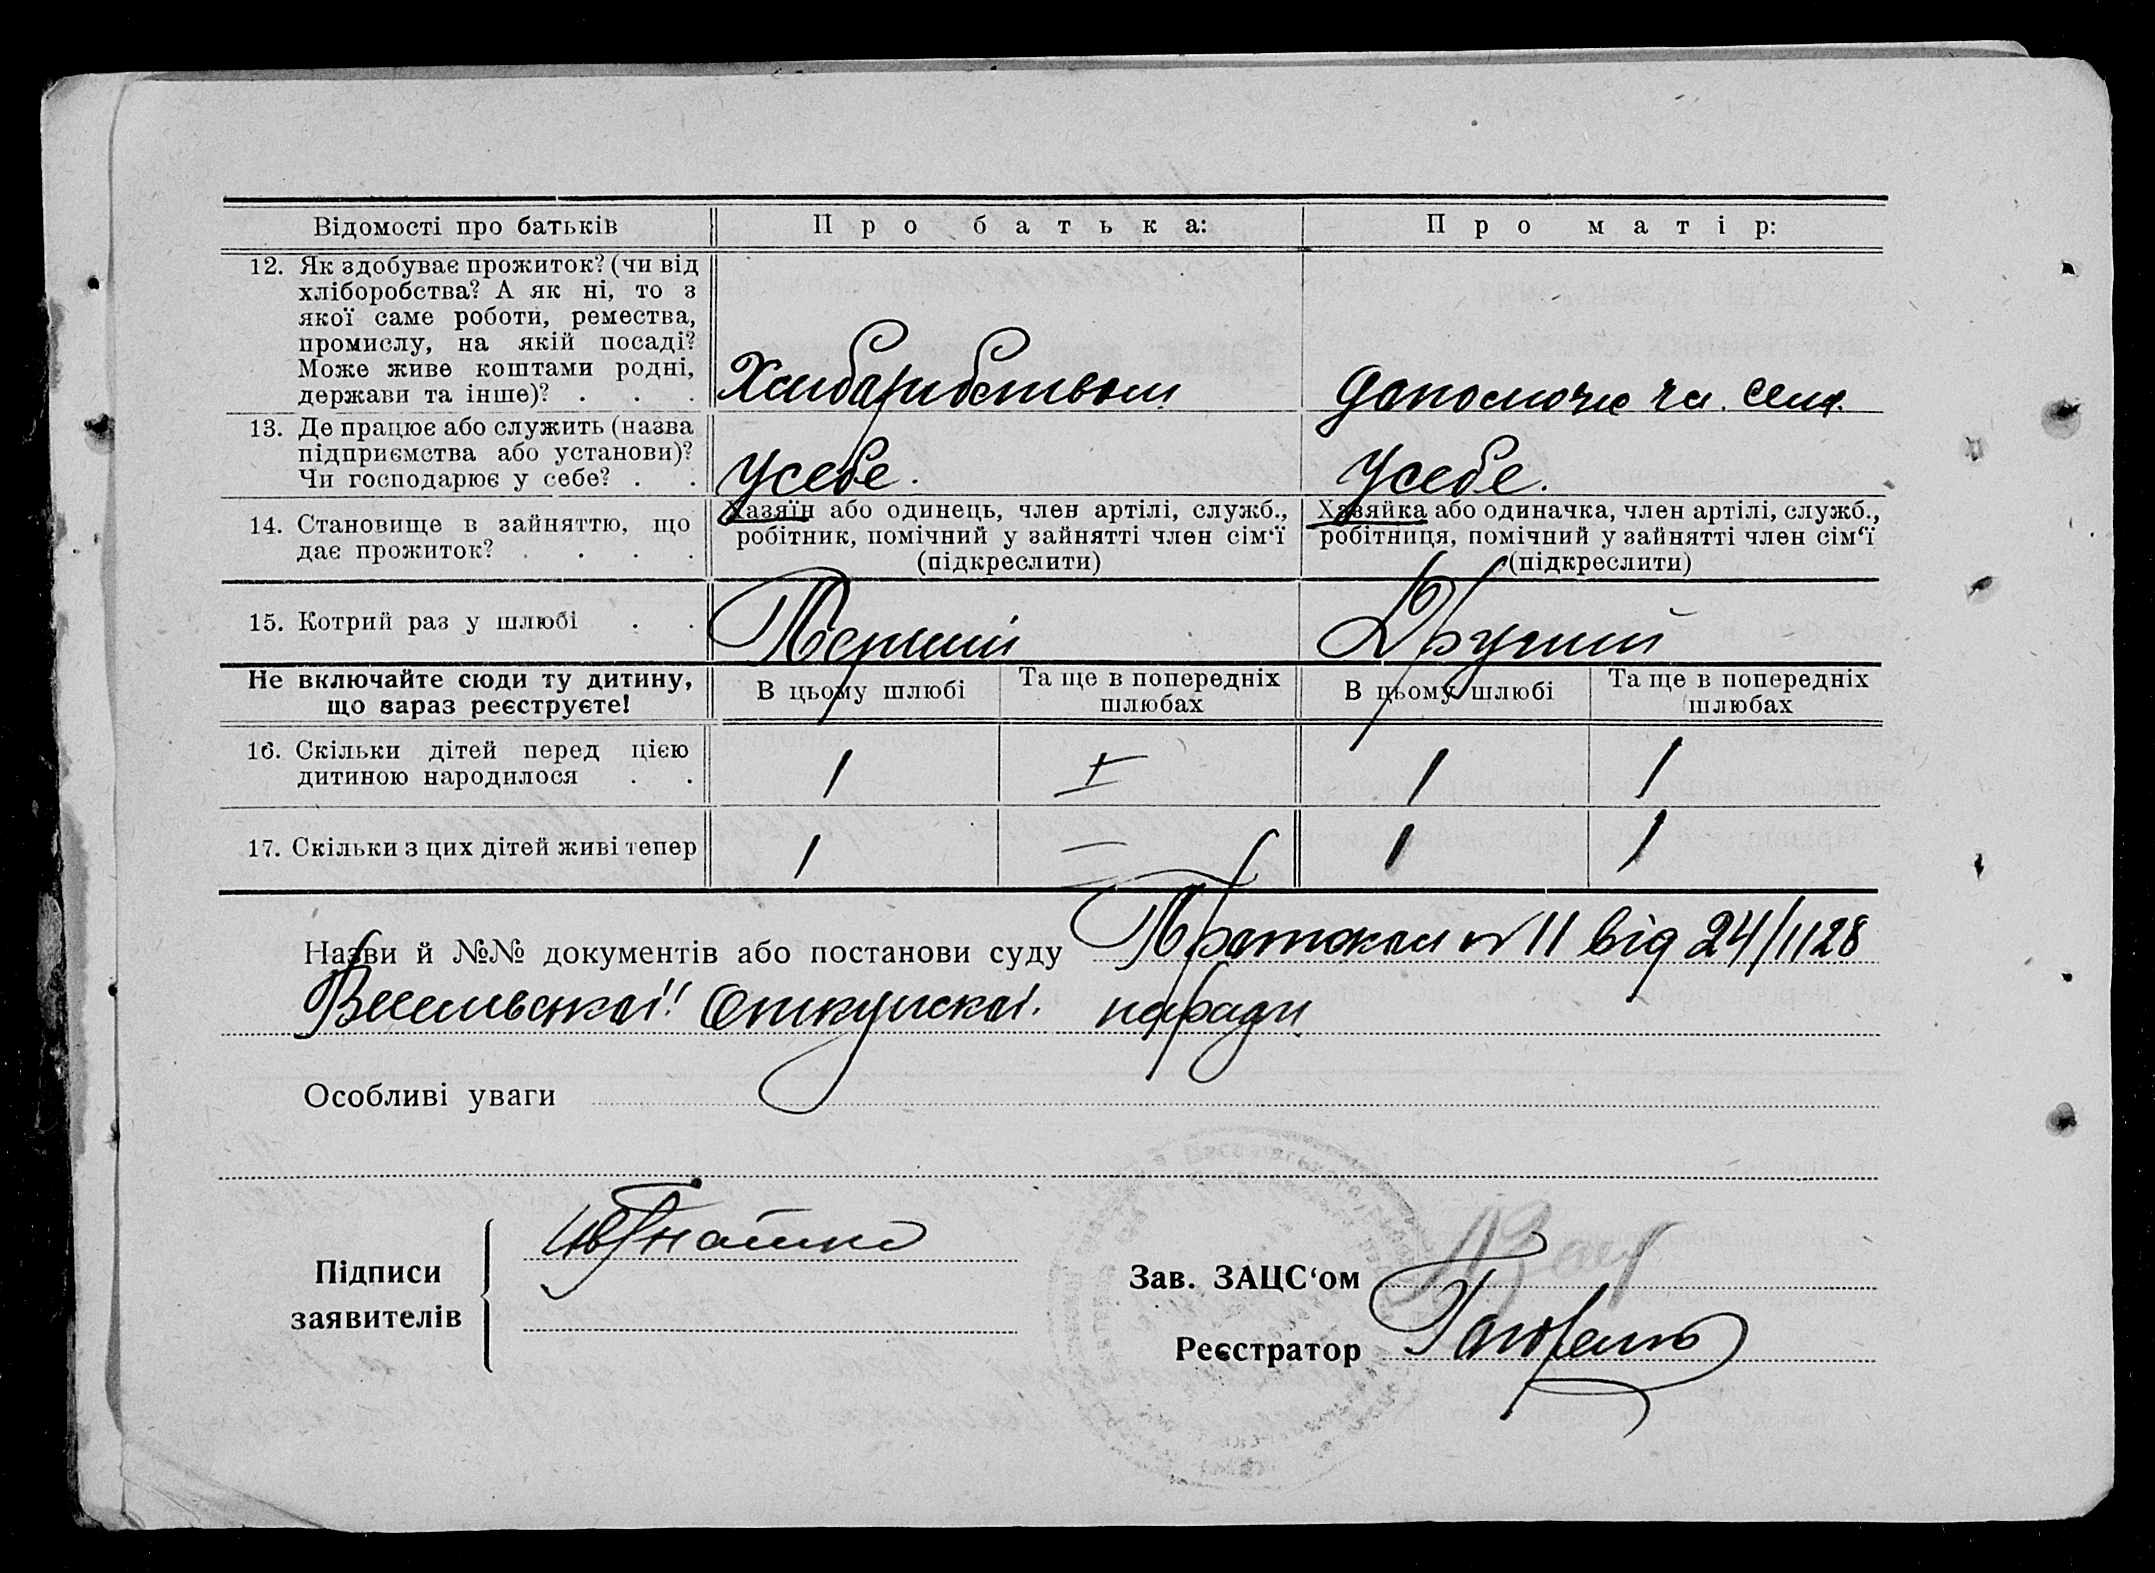 Відомості про батьків
Про батька:
Про матір:
12. Як здобуває прожиток? (чи від
хліборобства? А як ні, то з
якої саме роботи, ремества,
промислу, на якій посаді?
Може живе коштами родні,
держави та інше)? . . .
Хлибарибством
допоможе чл. семї.
13. Де працює або служить (назва
підприємства або установи)?
Чи господарює у себе? . .
Усебе.
Усебе.
14. Становище в зайняттю, що
дає прожиток? . . . .
Хазяїн або одинець, член артілі, служб.,
робітник, помічний у зайнятті член сім‘ї
(підкреслити)
Хазяйка або одиначка, член артілі, служб.,
робітниця, помічний у зайнятті член сім‘ї
(підкреслити)
15. Котрий раз у шлюбі . .
Перший
Другий
Не включайте сюди ту дитину,
що зараз реєструєте!
В цьому шлюбі
Та ще в попередніх
шлюбах
В цьому шлюбі
Та ще в попередніх
шлюбах
16. Скільки дітей перед цією
дитиною народилося . .
1
1
1
17. Скільки з цих дітей живі тепер
1
—
1
1
Назви й №№ документів або постанови суду Протокол № 11 від 24/II 28
наради
Особливі уваги
Підписи
заявителів
Зав. ЗАЦС‘ом
Реєстратор